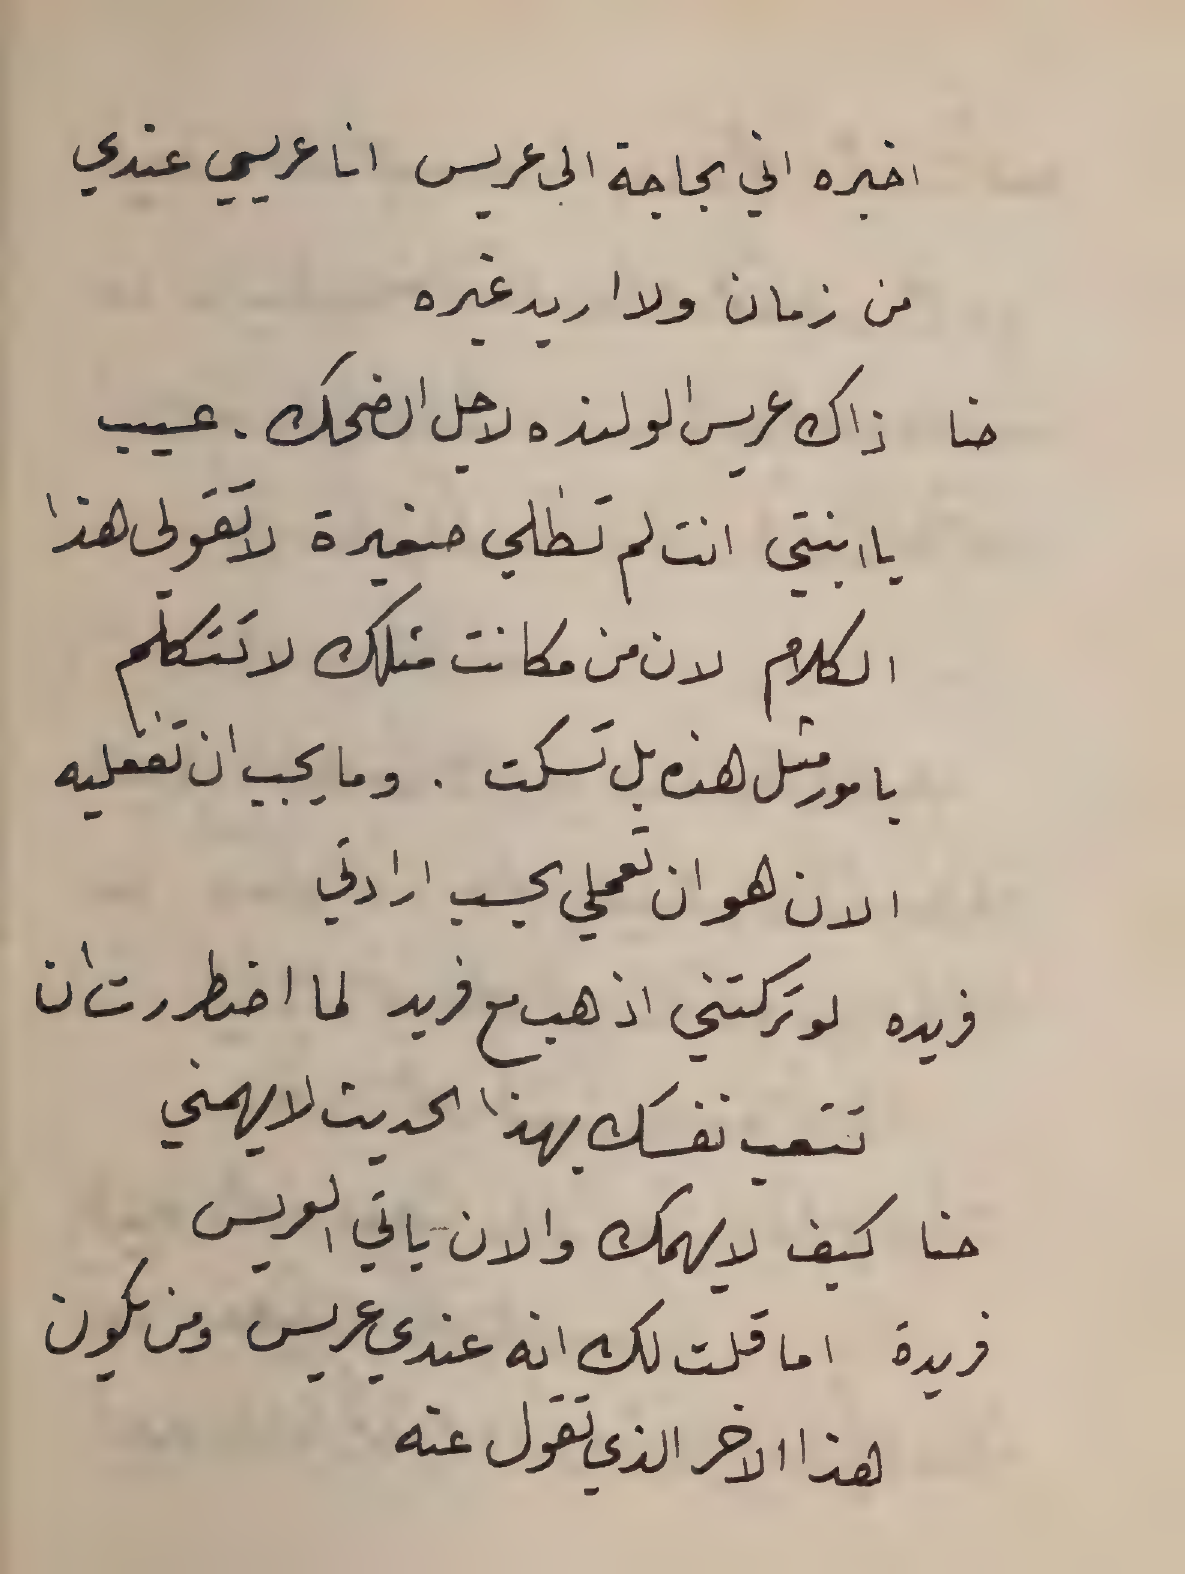 اخبره اني بحاجة الى عريس انا عريسي عندي
من زمان ولا اريد غيره
حنا ذاك عريس الولدنه لاجل الضحك . عيب
يا ابنتي انت لم تظلي صغيرة لا تقولي هذا
الكلام لان من كانت مثلك لا تتكلم
بامور مثل هذه بل تسكت . وما يجب ان تفعليه
الان هو ان تعملي بحسب ارادتي
فريده لو تركتني اذهب مع فريد لما اضطررت ان
تتعب نفسك بهذا الحديث لا يهمني
حنا كيف لا يهمك والان ياتي العريس
فريدة اما قلت لك انه عندي عريس ومن يكون
هذا الاخر الذي تقول عنه